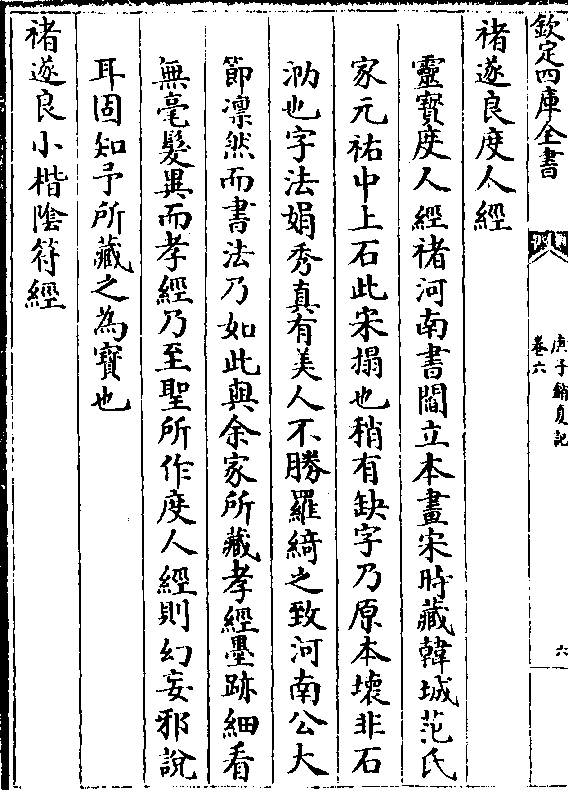 欽定四庫全書
庚子銷夏記
卷六
六
褚遂良度人經
靈寶度人經褚河南書閻立本畫宋時藏韓城范氏
家元祐中上石此宋搨也稍有缺字乃原本壞非石
泐也字法娟秀真有美人不勝羅綺之致河南公大
節凛然而書法乃如此與余家所藏孝經墨跡細看
無毫髮異而孝經乃至聖所作度人經則幻妄邪說
耳固知予所藏之為寶也
褚遂良小楷陰符經